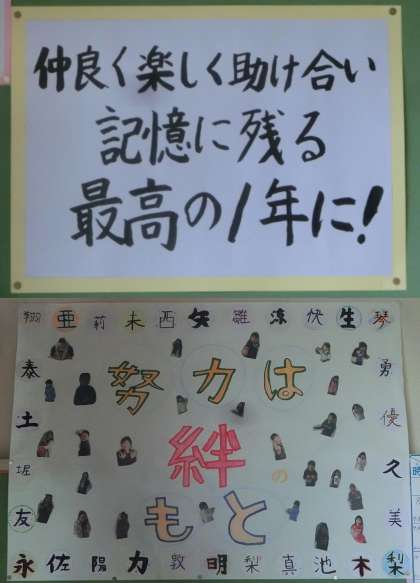 仲良く楽しく助け合い
記憶に残る
最高の1年に!
翔 亜 莉 未 西 矢 雛 涼 快 生 琴
泰 勇
土 優
堀 久
友 美
努力は
絆の
もと
永 佐 陽 力 敦 明 梨 真 池 木 梨